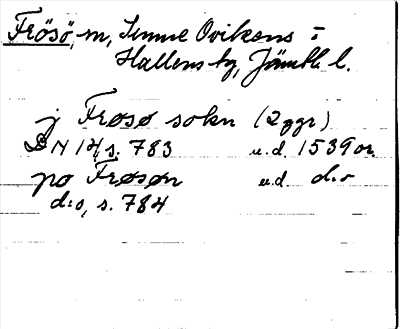 Frösö, m, Sunne Ovikens i
Hallens tg, Jämtl. l.
j Frøsø sokn (2 ggr)
DN 14, s. 783 u.d. 1539 or.
po Frøsøn u.d. d:o
d:o, s. 784